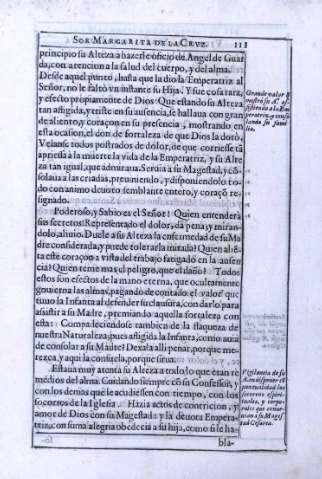 SOR MARGARITA DE LA CRVZ. 111
principio su Alteza a hazerle oficio de Angel de Guar
da, con atencion a la salud del cuerpo, y del alma.
Desde aquel punto, hasta que la dio la Emperatriz al
Señor, no le faltò vn instante su Hija. Y fue cosa rara,
y efecto propiamente de Dios: Que estando su Alteza
tan afligida, y triste en su ausencia, se hallaua con gran
de aliento, y coraçon en su presencia, mostrando en
esta ocasion, el don de fortaleza de que Dios la dotò.
Veianse todos postrados de dolor, de que corriesse tã
apriessa a la muerte la vida de la Emperatriz, y su Alte
za tan igual, que admiraua. Seruia a su Magestad, y cõ
solaua a las criadas, preuiniendo, y disponiendolo to-
do con animo deuoto semblante entero, y coraçõ re-
signado.
Poderoso, y Sabio es el Señor! Quien entenderà
sus secretos! Representado el dolor, da pena, y miran-
dolo, aliuio. Duele a su Alteza la enfermedad de su Ma
dre considerada, y puede tolerarla mirada? Quien aliẽ
ta este coraçon a vista del trabajo fatigado en la ausen
cia? Quien teme mas el peligro, que el daño? Todos
estos son efectos de la mano eterna, que ocultamente
gouierna las almas, pagando de contado el valor que
tuuo la Infanta al defender su clausura, con darlo para
assistir a su Madre, premiando aquella fortaleza con
esta: Compadeciendose tambien de la flaqueza de
nuestra Naturaleza, pues afligida la Infanta, como auia
de consolar a su Madre? Dexala alli penar, porque me-
rezca, y aqui la consuela, porque sirua.
Estaua muy atenta su Alteza a todo lo que eran re
medios del alma. Cuidando siempre cõ su Confessor, y
con los demas que le acudiessen con tiempo, con los
socorros de la Iglesia. Hazia actos de contricion, y
amor de Dios con su Magestad: y la deuota Empera-
triz, con suma alegria obedecia a su hija, como si le ha-
bla-
Grande valor q̃
mostro su A. as
sistiendo a la Em
peratriz, y conso
lando su fami
lia.
Vigilancia de su
A. en disponer cõ
puntualidad los
socorros espiri-
tuales, y corpo-
rales que
a su Mages
tad Cesarea.